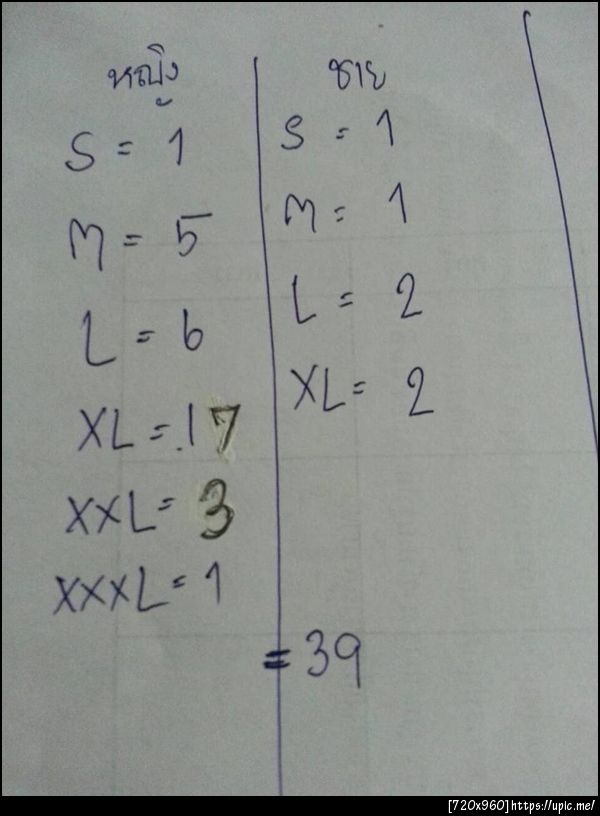 หญิง
S = 1
M = 5
L = 6
XL = 17
XXL = 3
XXXL = 1
ชาย
S = 1
M = 1
L = 2
XL = 2
= 39
[720x960]https://upic.me/